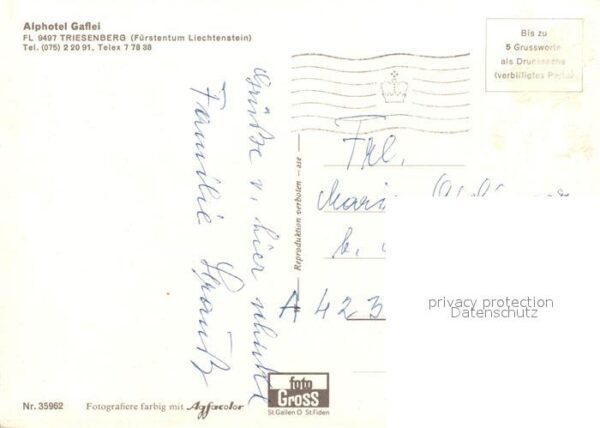 Alphotel Gaflei
FL 9497 TRIESENBERG (Fürstentum Liechtenstein)
Tel. (075) 2 20 91, Telex 7 78 38
Bis zu
5 Grussworte
als Drucksache
(verbilligtes Porto)
Grüße v. hier schickt
Familie
Reproduktion verboten - ase
Frl.
b.
A 423
privacy protection
Datenschutz
foto
GROSS
St. Gallen O St. Fiden
Nr. 35962 Fotografiere farbig mit Agfacolor